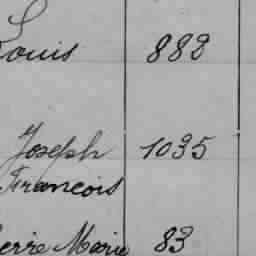 Louis 883
Joseph 1035
Francois
Pierre Marie 83